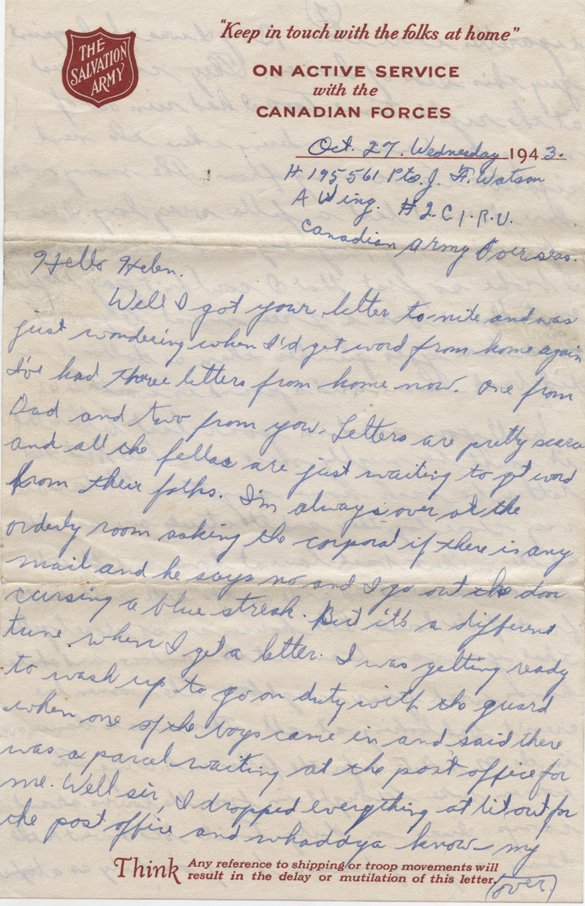 "Keep in touch with the folks at home"
THE
SALVATION
ARMY
ON ACTIVE SERVICE
with the
CANADIAN FORCES
Oct. 27. Wednesday 1943.
# 195561 Pte. J. F. Watson
A Wing. #2 C.I.R.U.
Canadian Army Overseas.
Hello Helen.
Well I got your letter to-nite and was
just wondering when I'd get word from home again
I've had three letters from home now. One from
Dad and two from you. Letters are pretty scarce
and all the fellas are just waiting to get word
from their folks. I'm always over at the
orderly room asking the corporal if there is any
mail and he says no and I go out the door
cursing a blue streak. But it's a different
tune when I get a letter. I was getting ready
to wash up to go on duty with the guard
when one of the boys came in and said there
was a parcel waiting at the post office for
me. Well sir, I dropped everything at lit out for
the post office and whaddya know - my
Think Any reference to shipping or troop movements will
result in the delay or mutilation of this letter.
(over)